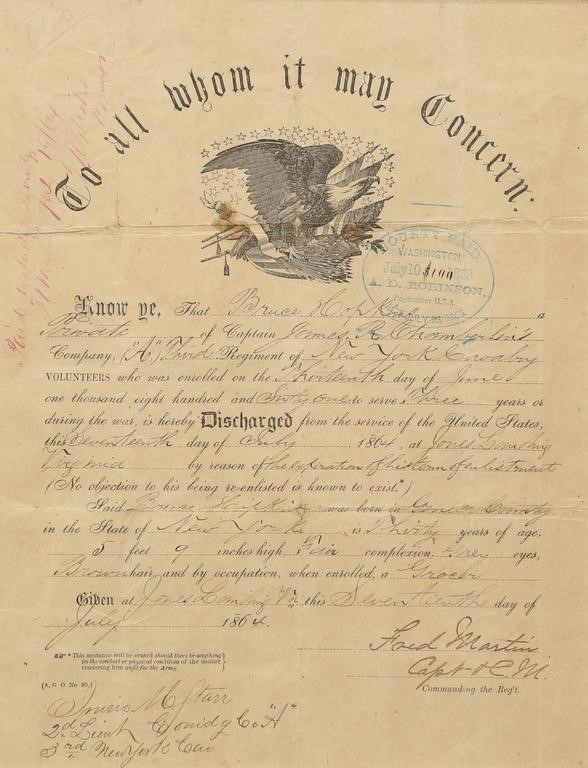 To all whom it may Concern:
BOUNTY PAID
WASHINGTON
July 10 $100
A. D. ROBINSON,
Paymaster U.S.A.
Know ye, That Bruce Hopkins a
Private of Captain James R. Chamberlin's
Company, ("A,") Third Regiment of New York Cavalry
VOLUNTEERS who was enrolled on the Thirteenth day of June
one thousand eight hundred and Sixty one to serve Three years or
during the war, is hereby Discharged from the service of the United States,
this Seventeenth day of July 1864, at Jones Landing
Virginia by reason of the expiration of his term of enlistment
(No objection to his being re-enlisted is known to exist.*)
Said Bruce Hopkins was born in County
in the State of New York, is Thirty years of age,
5 feet 9 inches high, Fair complexion, Grey eyes,
Brown hair, and by occupation, when enrolled, a Grocer
Given at Jones Landing Va this Seventeenth day of
July 1864.
*This sentence will be erased should there be anything
in the conduct or physical condition of the soldier
rendering him unfit for the Army.
Fred Martin
Capt & C.M.
Commanding the Reg't.
[A. G. O No 99.]
M. Starr
2d Lieut Comdg Co "A"
3rd New York Cav